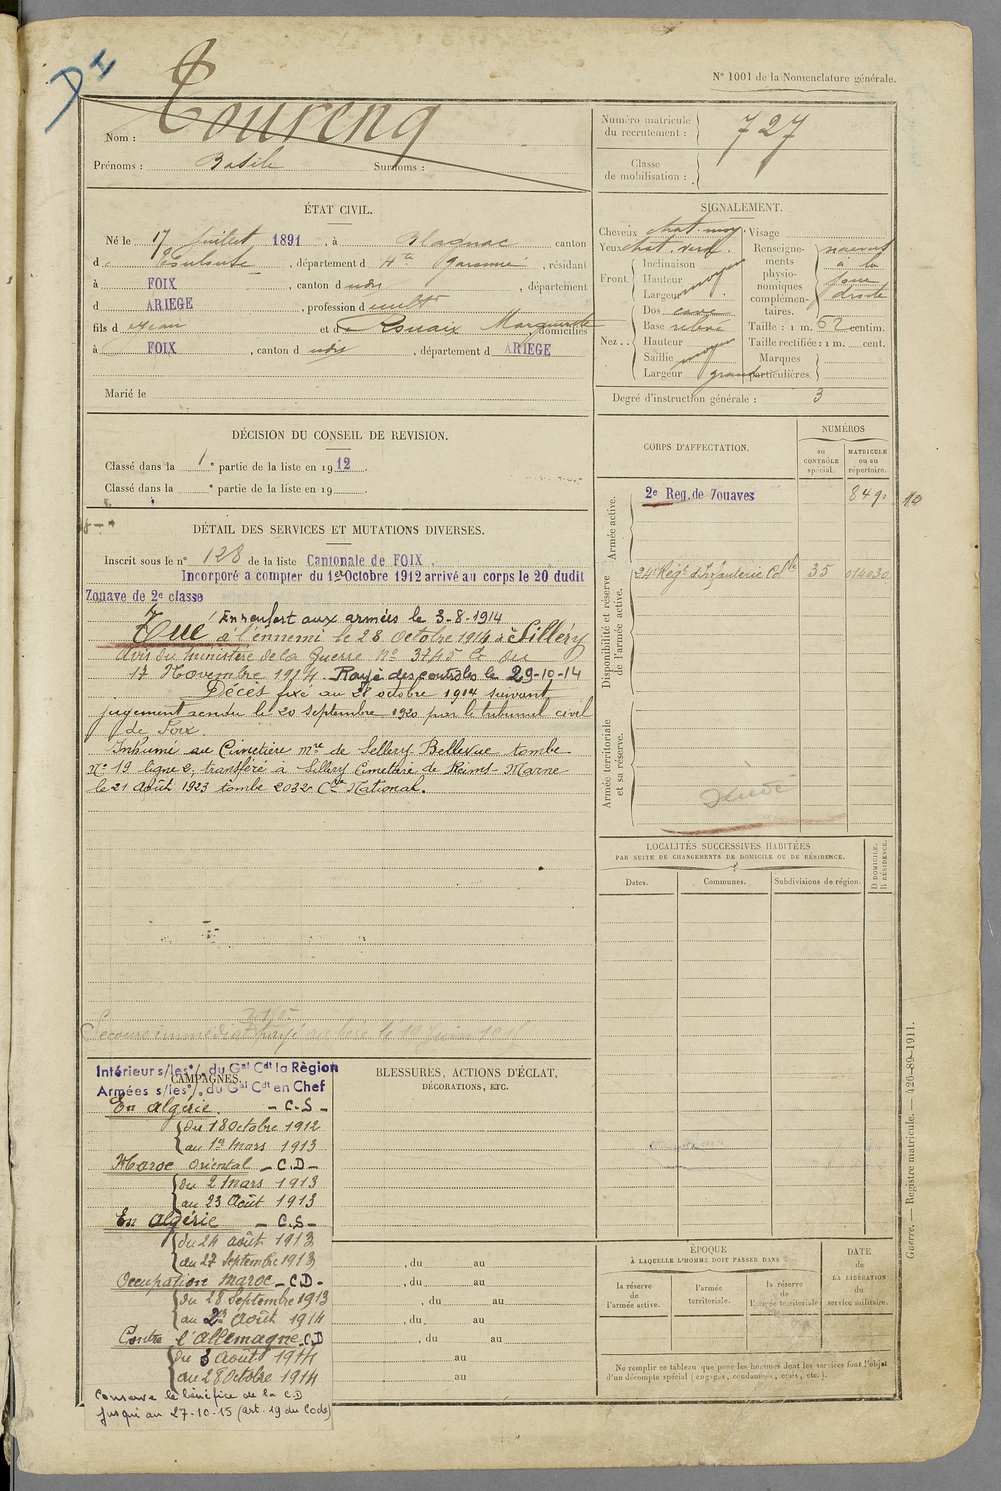 D I
N° 1001 de la Nomenclature générale.
Nom : Tourenq
Prénoms : Basile Surnoms :
Numéro matricule du recrutement : 727
Classe de mobilisation :
ÉTAT CIVIL.
Né le 17 Juillet 1891, à Blagnac canton
d Toulouse, département d Hte Garonne, résidant
à FOIX, canton d udis, département
d ARIEGE, profession d cult
fils d Jean et d Rouaix Marguerite domiciliés
à FOIX, canton d udis, département d ARIEGE
Marié le
SIGNALEMENT.
Cheveux chat. moy Visage
Yeux chat. verd. Renseignements physionomiques complémentaires. naevus à la joue droite
Front. Inclinaison
Hauteur moyen
Largeur
Nez.. Dos cave
Base relevé Taille : 1 m. 62 centim.
Hauteur Taille rectifiée : 1 m. cent.
Saillie moyen Marques
Largeur grand particulières.
Degré d'instruction générale : 3
DÉCISION DU CONSEIL DE REVISION.
Classé dans la 1e partie de la liste en 1912.
Classé dans la e partie de la liste en 19
DÉTAIL DES SERVICES ET MUTATIONS DIVERSES.
Inscrit sous le n° 128 de la liste Cantonale de FOIX.
Incorporé a compter du 1er Octobre 1912 arrivé au corps le 20 dudit
Zouave de 2e classe
En renfort aux armées le 3-8-1914
Tué à l'ennemi le 28 octobre 1914 à Silléry
avis du ministère de la Guerre N° 3745 du
17 Novembre 1914. Rayé des contrôles le 29-10-14
Décès fixé au 28 octobre 1914 suivant
jugement rendu le 20 septembre 1920 par le tribunal civil
de Foix.
Inhumé au Cimetière mre de Sellery Bellevue tombe
N° 19 ligne 2, transféré à Sillery Cimetière de Reims-Marne
le 21 Août 1923 tombe 2032 Cre National.
Secours immédiat payé au père le 19 Juin
CORPS D'AFFECTATION.
NUMÉROS
au CONTRÔLE spécial.
MATRICULE ou au répertoire.
Armée active.
2e Reg. de Zouaves 8490
10
Disponibilité et réserve de l'armée active.
24e Régt d'Infanterie Cole 35 014030
Armée territoriale et sa réserve.
Décédé
LOCALITÉS SUCCESSIVES HABITÉES
PAR SUITE DE CHANGEMENTS DE DOMICILE OU DE RÉSIDENCE.
Dates. Communes. Subdivisions de région.
D DOMICILE. R RÉSIDENCE.
Intérieur s/les o/. du Gal Cdt la Région
CAMPAGNES.
Armées s/les o/. du Gal Cdt en Chef
En Algérie. - C.S -
du 18 Octobre 1912
au 1er Mars 1913
Maroc Oriental - C.D -
du 2 Mars 1913
au 23 Août 1913
En Algérie - C.S -
du 24 août 1913
au 27 Septembre 1913
Occupation Maroc - C.D -
du 28 Septembre 1913
au 2 Août 1914
Contre l'Allemagne C.D
du 3 Août 1914
au 28 Octobre 1914
Conserve le bénéfice de la C.D
jusqu'au 27-10-15 (art. 19 du Code)
BLESSURES, ACTIONS D'ÉCLAT,
DÉCORATIONS, ETC.
, du au
, du au
, du au
, du au
, du au
au
au
ÉPOQUE
À LAQUELLE L'HOMME DOIT PASSER DANS
la réserve de l'armée active.
l'armée territoriale.
la réserve de l'armée territoriale
DATE de LA LIBÉRATION du service militaire.
Ne remplir ce tableau que pour les hommes dont les services font l'objet
d'un décompte spécial (engagés, condamnés, omis, etc.).
Guerre. — Registre matricule. — 420-89-1911.